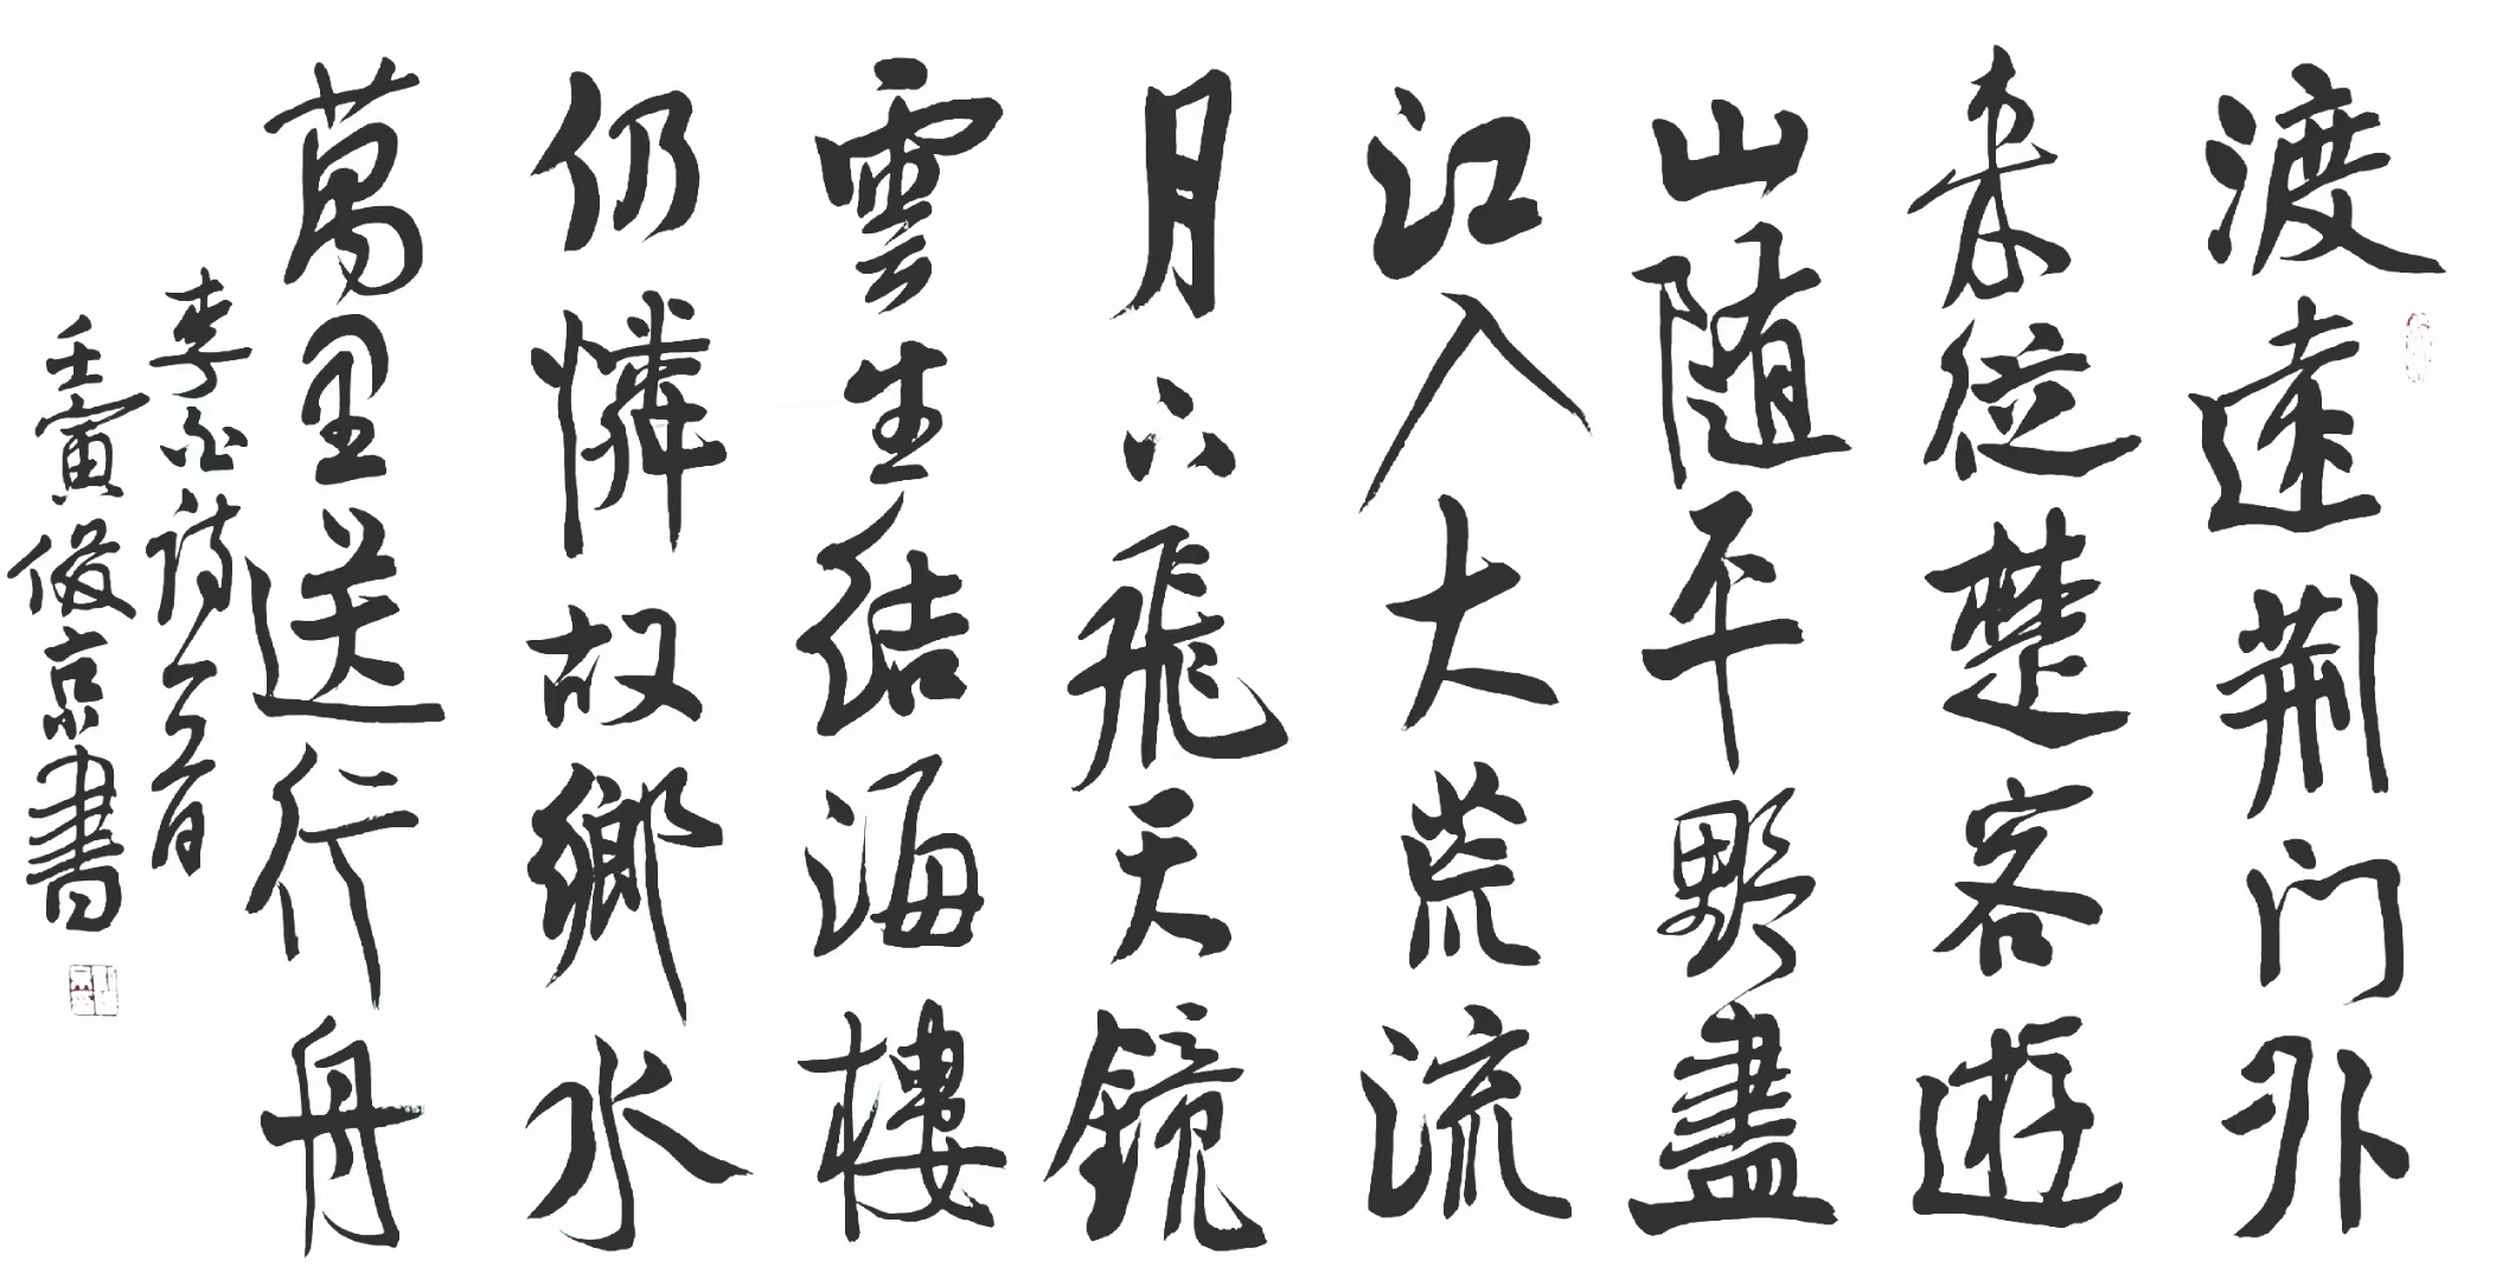 渡遠荊門外
来從楚客遊
山隨平野盡
江入大荒流
月下飛天鏡
雲生結海樓
仍憐故鄉水
萬里送行舟
李白詩首
壬寅俊京書